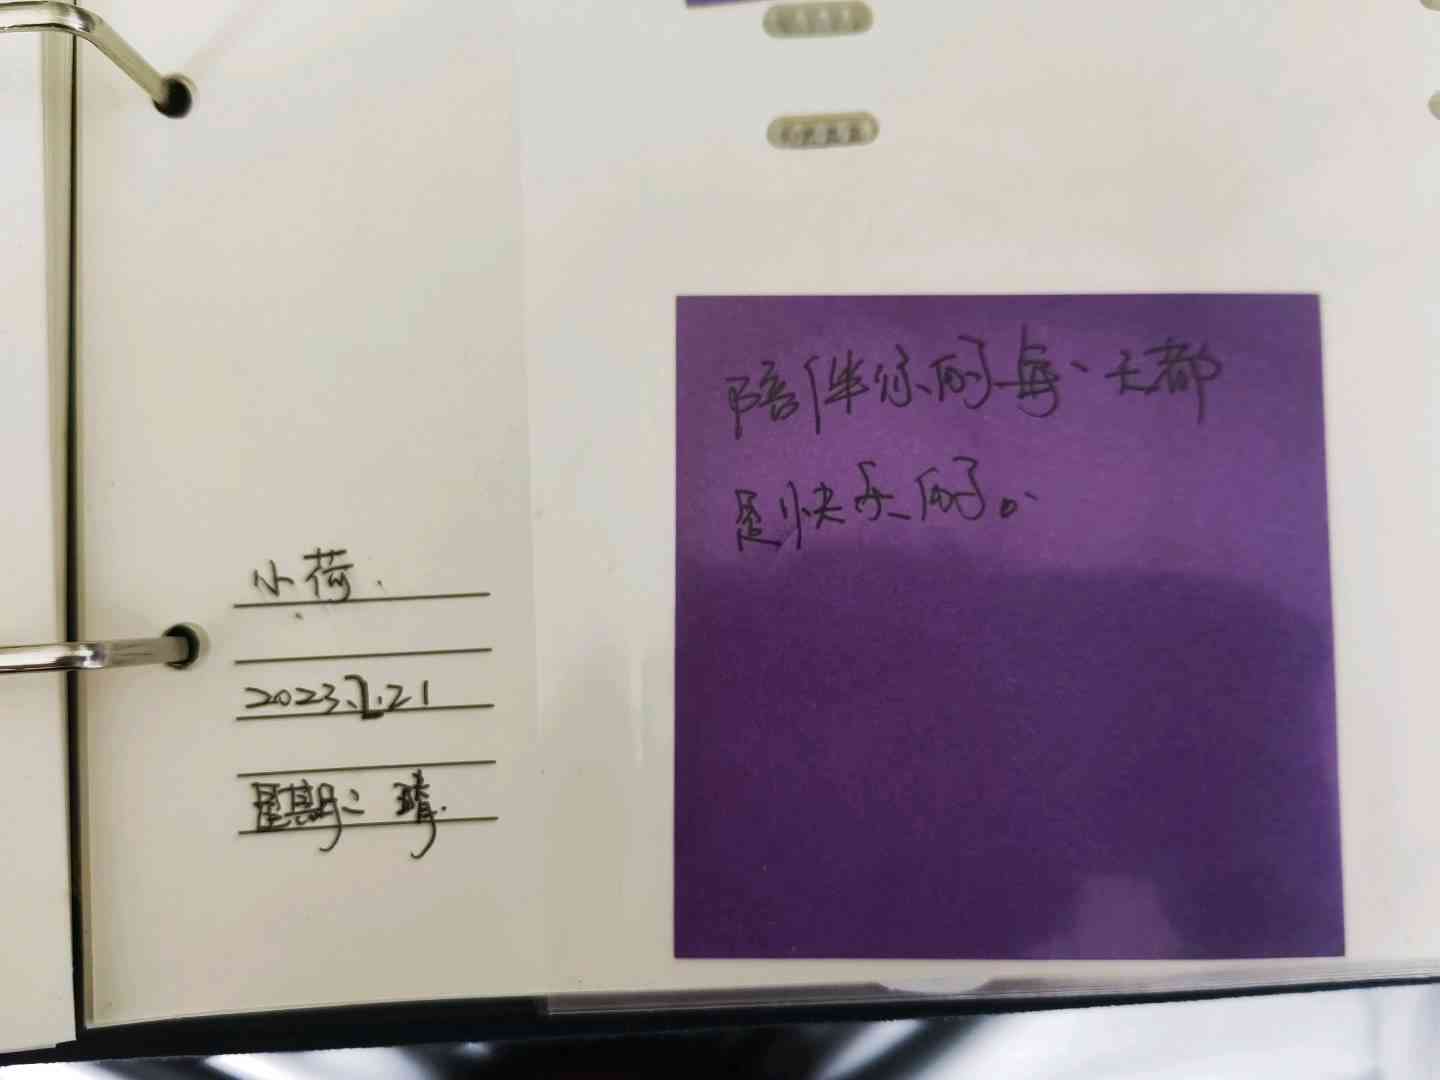 小荷.
2023.2.21
星期二 晴.
陪伴你的每一天都
是快乐的。